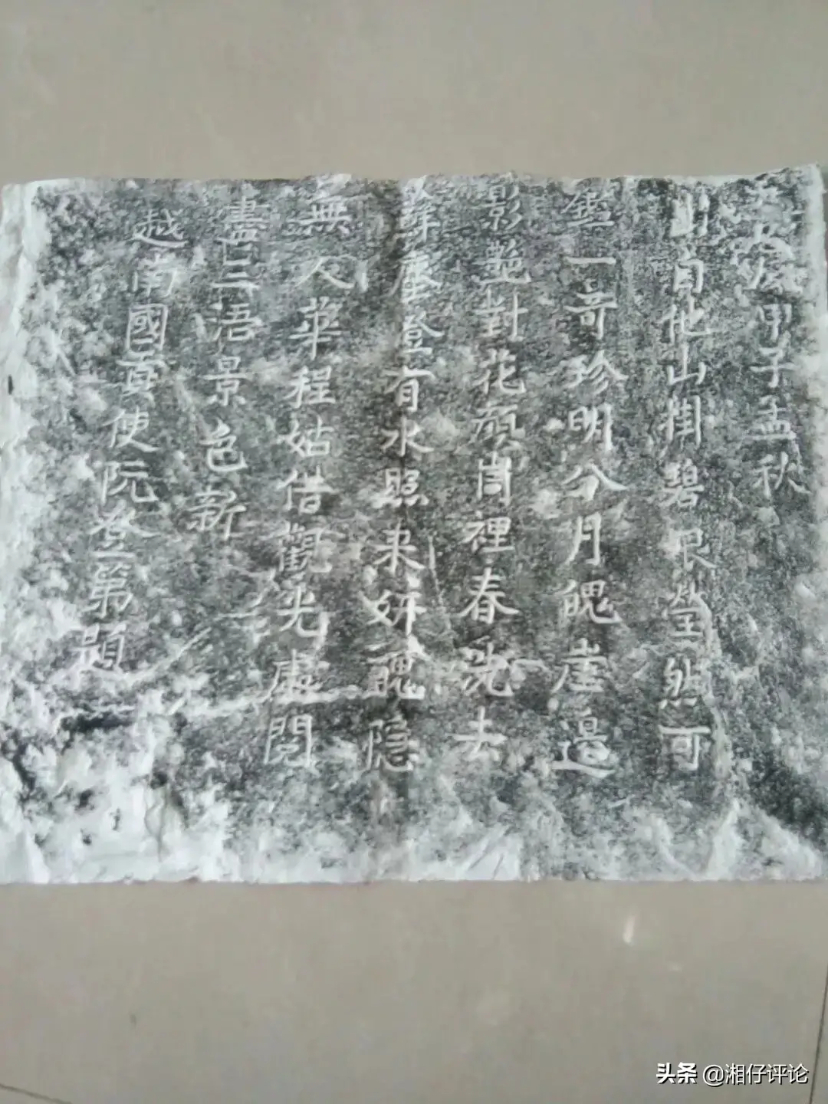 慶甲子孟秋
出自他山掛碧垠瑩然可
鑑一奇珍明分月魄崖邉
影艷對花顏岫裡春洗去
塵澄有水照来妍醜隐
無人華程姑借觀光處閱
盡三浯景色新
越南國貢使阮登第題
头条 @湘仔评论